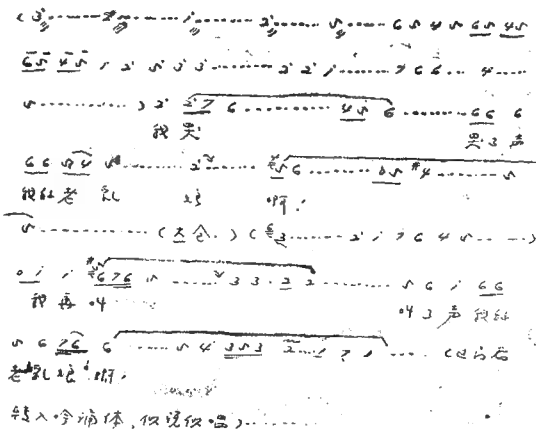 ( 3 ........ i ........ 2 ........ 5 ..... 6 5 4 5 6 5 4 5
6 5 4 5 i 2 5 3 3 ........ 2 2 i ........ 7 6 6 .. 4 ....
5 ............ ) 2 2 7 6 ........... 4 5 6 ........ 6 6 6
我 哭 哭 3 声
6 6 5 4 5 ........ 2 ....... 5 6 ....... 5 #4 ....... 5
我的老 乳 娘 啊!
5 ............ ( 大 仓 . ) ( 3 ....... 2 i 7 6 4 5 ........ )
0 i i 6 7 6 5 ....... 3 3 . 2 2 ............ 5 6 i 6 6
我 再 叫 叫 3 声 我的
5 6 7 6 6 ..... 5 4 3 5 3 2 .. i 7 ..... (过门后
老乳娘 啊,
转入吟诵体, 似说似唱) ........